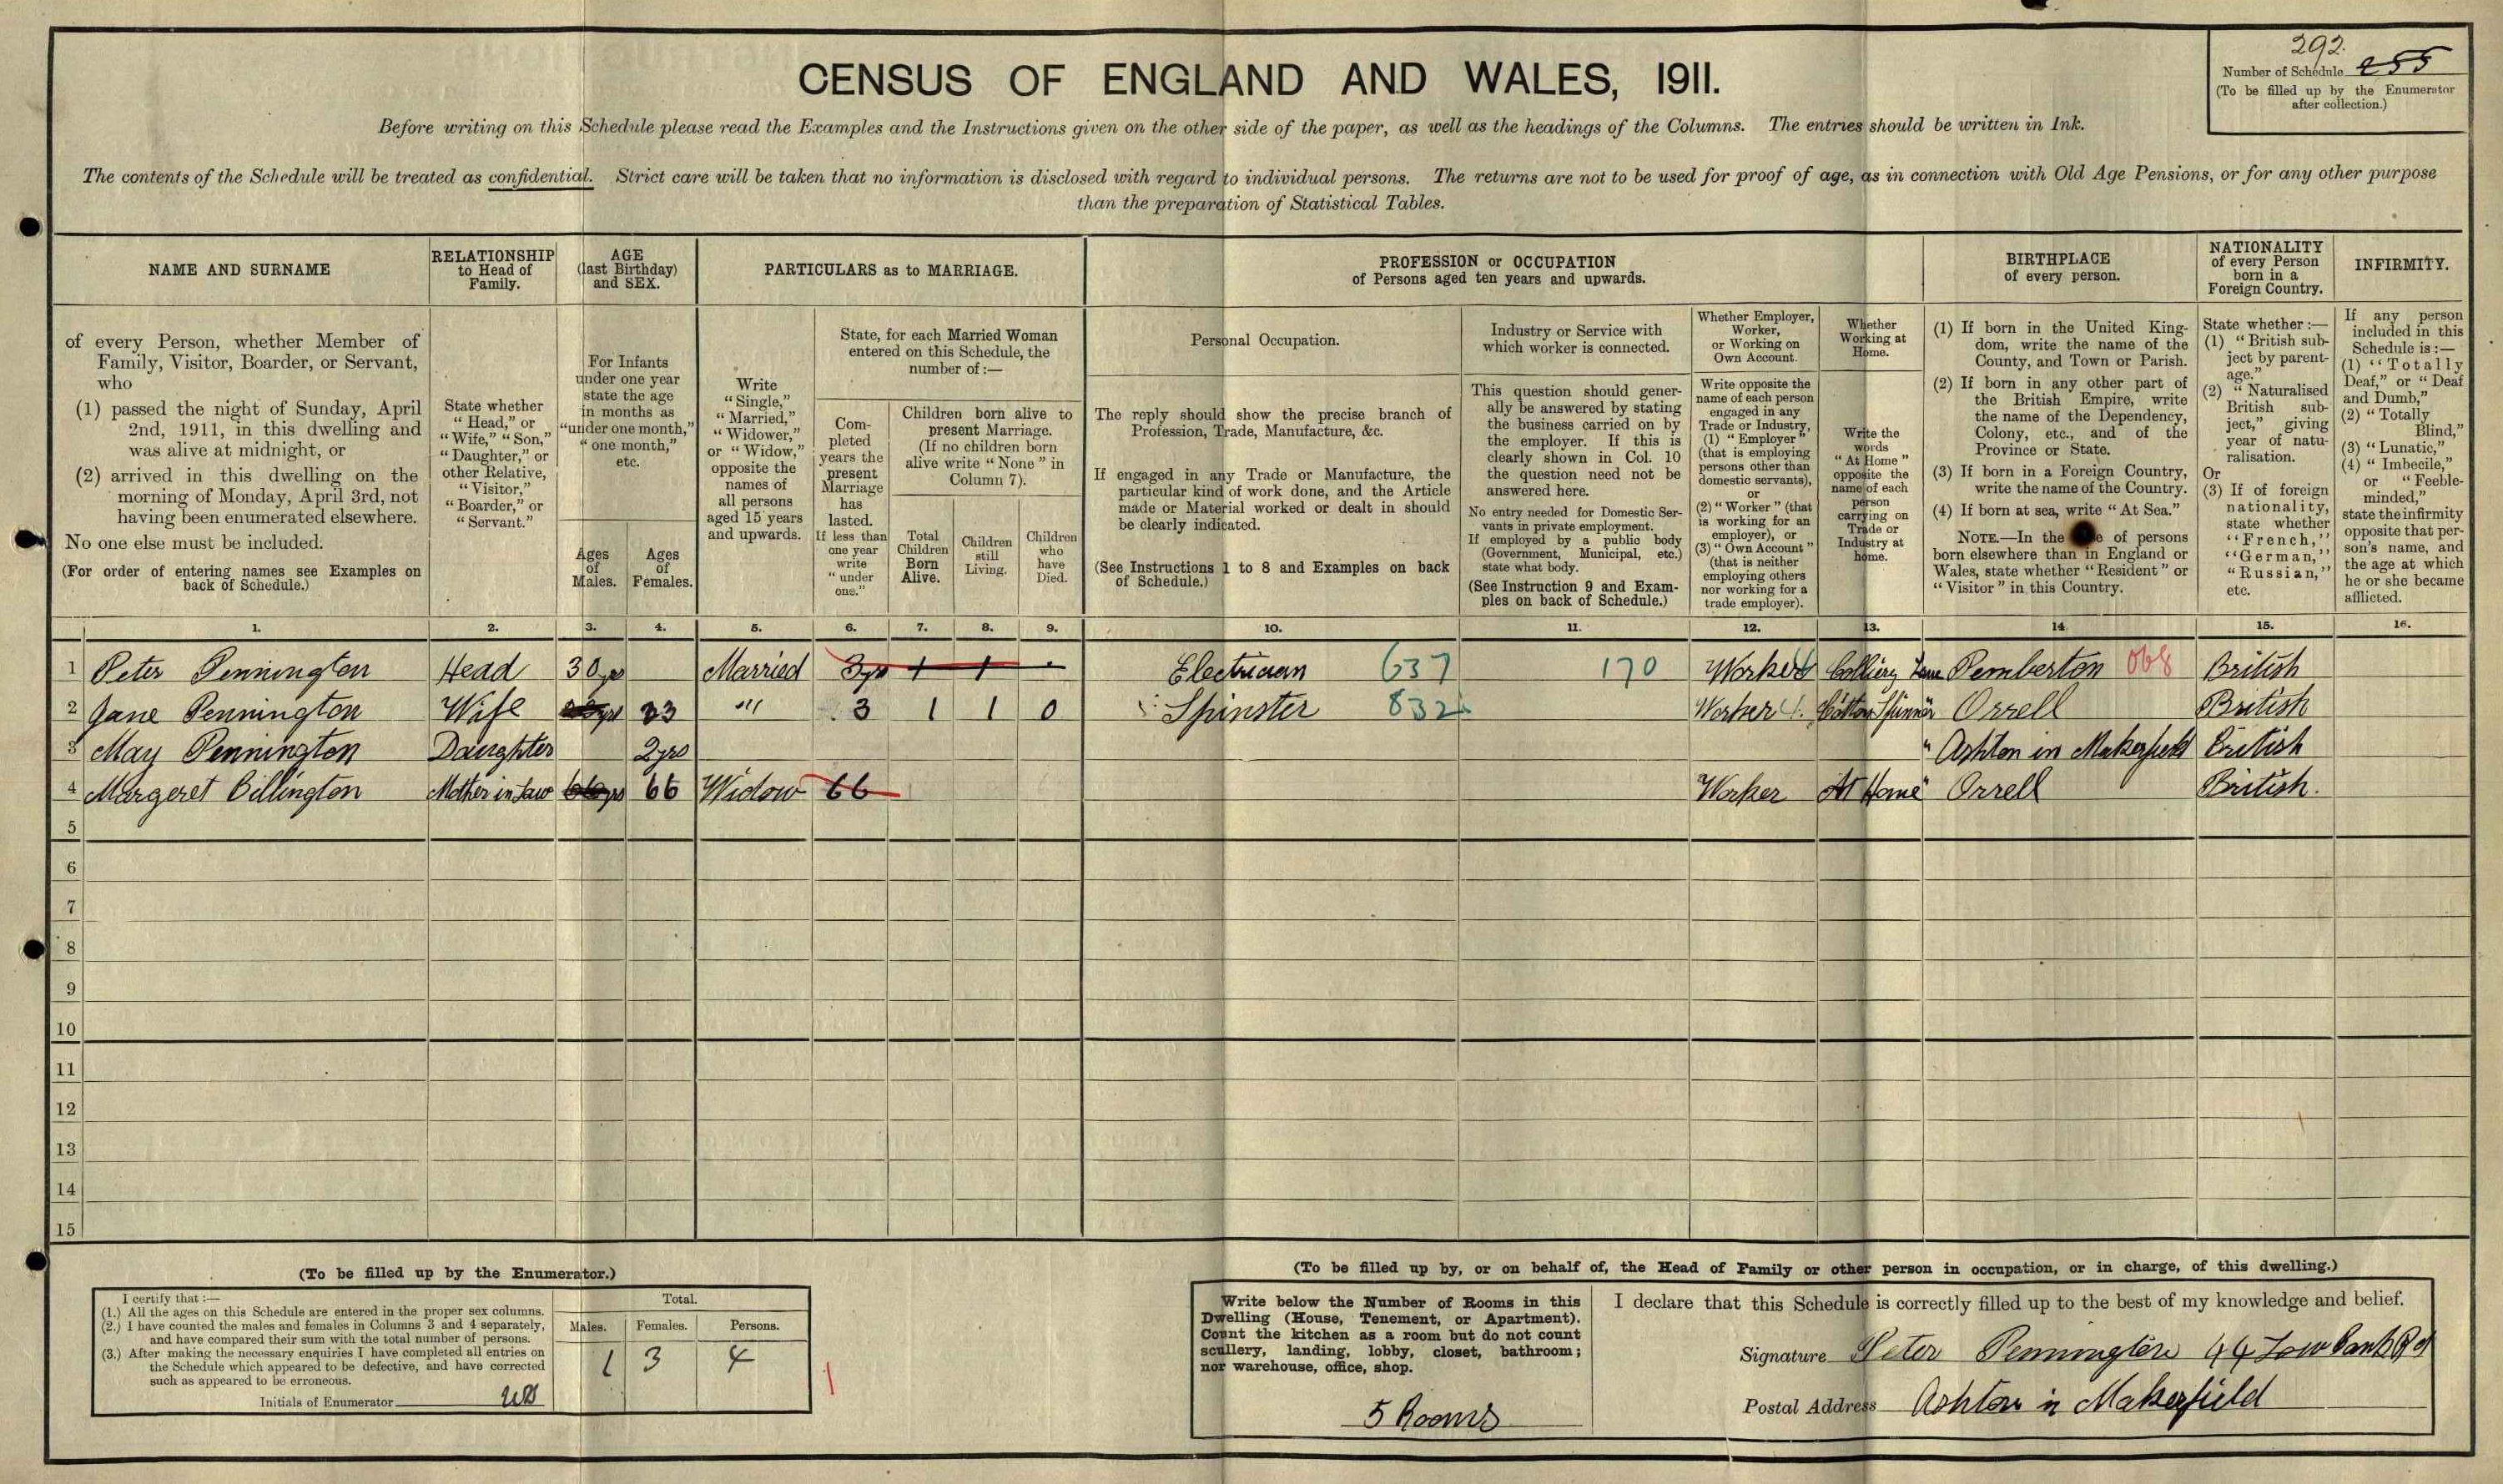 292.
Number of Schedule 255
(To be filled up by the Enumerator
after collection.)
CENSUS OF ENGLAND AND WALES, 1911.
Before writing on this Schedule please read the Examples and the Instructions given on the other side of the paper, as well as the headings of the Columns. The entries should be written in Ink.
The contents of the Schedule will be treated as confidential. Strict care will be taken that no information is disclosed with regard to individual persons. The returns are not to be used for proof of age, as in connection with Old Age Pensions, or for any other purpose
than the preparation of Statistical Tables.
NAME AND SURNAME
of every Person, whether Member of
Family, Visitor, Boarder, or Servant,
who
(1) passed the night of Sunday, April
2nd, 1911, in this dwelling and
was alive at midnight, or
(2) arrived in this dwelling on the
morning of Monday, April 3rd, not
having been enumerated elsewhere.
No one else must be included.
(For order of entering names see Examples on
back of Schedule.)
RELATIONSHIP
to Head of
Family.
State whether
"Head," or
"Wife," "Son,"
"Daughter," or
other Relative,
"Visitor,"
"Boarder," or
"Servant."
AGE
(last Birthday)
and SEX.
For Infants
under one year
state the age
in months as
"under one month,"
"one month,"
etc.
Ages
of
Males.
Ages
of
Females.
PARTICULARS as to MARRIAGE.
Write
"Single,"
"Married,"
"Widower,"
or "Widow,"
opposite the
names of
all persons
aged 15 years
and upwards.
State, for each Married Woman
entered on this Schedule, the
number of :—
Com-
pleted
years the
present
Marriage
has
lasted.
If less than
one year
write
"under
one."
Children born alive to
present Marriage.
(If no children born
alive write "None" in
Column 7).
Total
Children
Born
Alive.
Children
still
Living.
Children
who
have
Died.
PROFESSION or OCCUPATION
of Persons aged ten years and upwards.
Personal Occupation.
The reply should show the precise branch of
Profession, Trade, Manufacture, &c.
If engaged in any Trade or Manufacture, the
particular kind of work done, and the Article
made or Material worked or dealt in should
be clearly indicated.
(See Instructions 1 to 8 and Examples on back
of Schedule.)
Industry or Service with
which worker is connected.
This question should gener-
ally be answered by stating
the business carried on by
the employer. If this is
clearly shown in Col. 10
the question need not be
answered here.
No entry needed for Domestic Ser-
vants in private employment.
If employed by a public body
(Government, Municipal, etc.)
state what body.
(See Instruction 9 and Exam-
ples on back of Schedule.)
Whether Employer,
Worker,
or Working on
Own Account.
Write opposite the
name of each person
engaged in any
Trade or Industry,
(1) "Employer"
(that is employing
persons other than
domestic servants),
or
(2) "Worker" (that
is working for an
employer), or
(3) "Own Account"
(that is neither
employing others
nor working for a
trade employer).
Whether
Working at
Home.
Write the
words
"At Home"
opposite the
name of each
person
carrying on
Trade or
Industry at
home.
BIRTHPLACE
of every person.
(1) If born in the United King-
dom, write the name of the
County, and Town or Parish.
(2) If born in any other part of
the British Empire, write
the name of the Dependency,
Colony, etc., and of the
Province or State.
(3) If born in a Foreign Country,
write the name of the Country.
(4) If born at sea, write "At Sea."
NOTE.—In the e of persons
born elsewhere than in England or
Wales, state whether "Resident" or
"Visitor" in this Country.
NATIONALITY
of every Person
born in a
Foreign Country.
State whether :—
(1) "British sub-
ject by parent-
age."
(2) "Naturalised
British sub-
ject," giving
year of natu-
ralisation.
Or
(3) If of foreign
nationality,
state whether
"French,"
"German,"
"Russian,"
etc.
INFIRMITY.
If any person
included in this
Schedule is :—
(1) "Totally
Deaf," or "Deaf
and Dumb,"
(2) "Totally
Blind,"
(3) "Lunatic,"
(4) "Imbecile,"
or "Feeble-
minded,"
state the infirmity
opposite that per-
son's name, and
the age at which
he or she became
afflicted.
1. 2. 3. 4. 5. 6. 7. 8. 9. 10. 11. 12. 13. 14. 15. 16.
1 Peter Pennington Head 30 yrs Married 3 yrs 1 1 - Electrician 637 170 Worker Colliery Pemberton 068 British
2 Jane Pennington Wife yrs 33 "" 3 1 1 0 Spinster 832 Worker Cotton Spinner Orrell British
3 May Pennington Daughter 2 yrs " Ashton in Makerfield British
4 Margeret Billington Mother in Law 66 yrs 66 Widow 66 Worker At Home Orrell British.
5
6
7
8
9
10
11
12
13
14
15
(To be filled up by the Enumerator.)
I certify that :—
(1.) All the ages on this Schedule are entered in the proper sex columns.
(2.) I have counted the males and females in Columns 3 and 4 separately,
and have compared their sum with the total number of persons.
(3.) After making the necessary enquiries I have completed all entries on
the Schedule which appeared to be defective, and have corrected
such as appeared to be erroneous.
Initials of Enumerator
Total.
Males. Females. Persons.
1 3 4
(To be filled up by, or on behalf of, the Head of Family or other person in occupation, or in charge, of this dwelling.)
Write below the Number of Rooms in this
Dwelling (House, Tenement, or Apartment).
Count the kitchen as a room but do not count
scullery, landing, lobby, closet, bathroom;
nor warehouse, office, shop.
5 Rooms
I declare that this Schedule is correctly filled up to the best of my knowledge and belief.
Signature Peter Pennington 44 Low Bank Rd
Postal Address Ashton in Makerfield